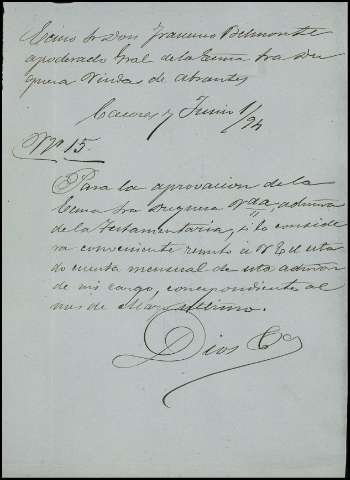 Excmo Sr Don Francisco Belmonte
apoderado Gral de la Excma Sra Du
quesa Viuda de Abrantes
Caceres y Junio 1/94
Nº 15.
Para la aprovacion de la
Excma Sra Duquesa Vda, admora
de la Testamentaria, si lo conside
ra conveniente remito à V E el esta
do cuenta mensual de esta admon
de mi cargo, correspondiente al
mes de Mayo ultimo.
Dios &a